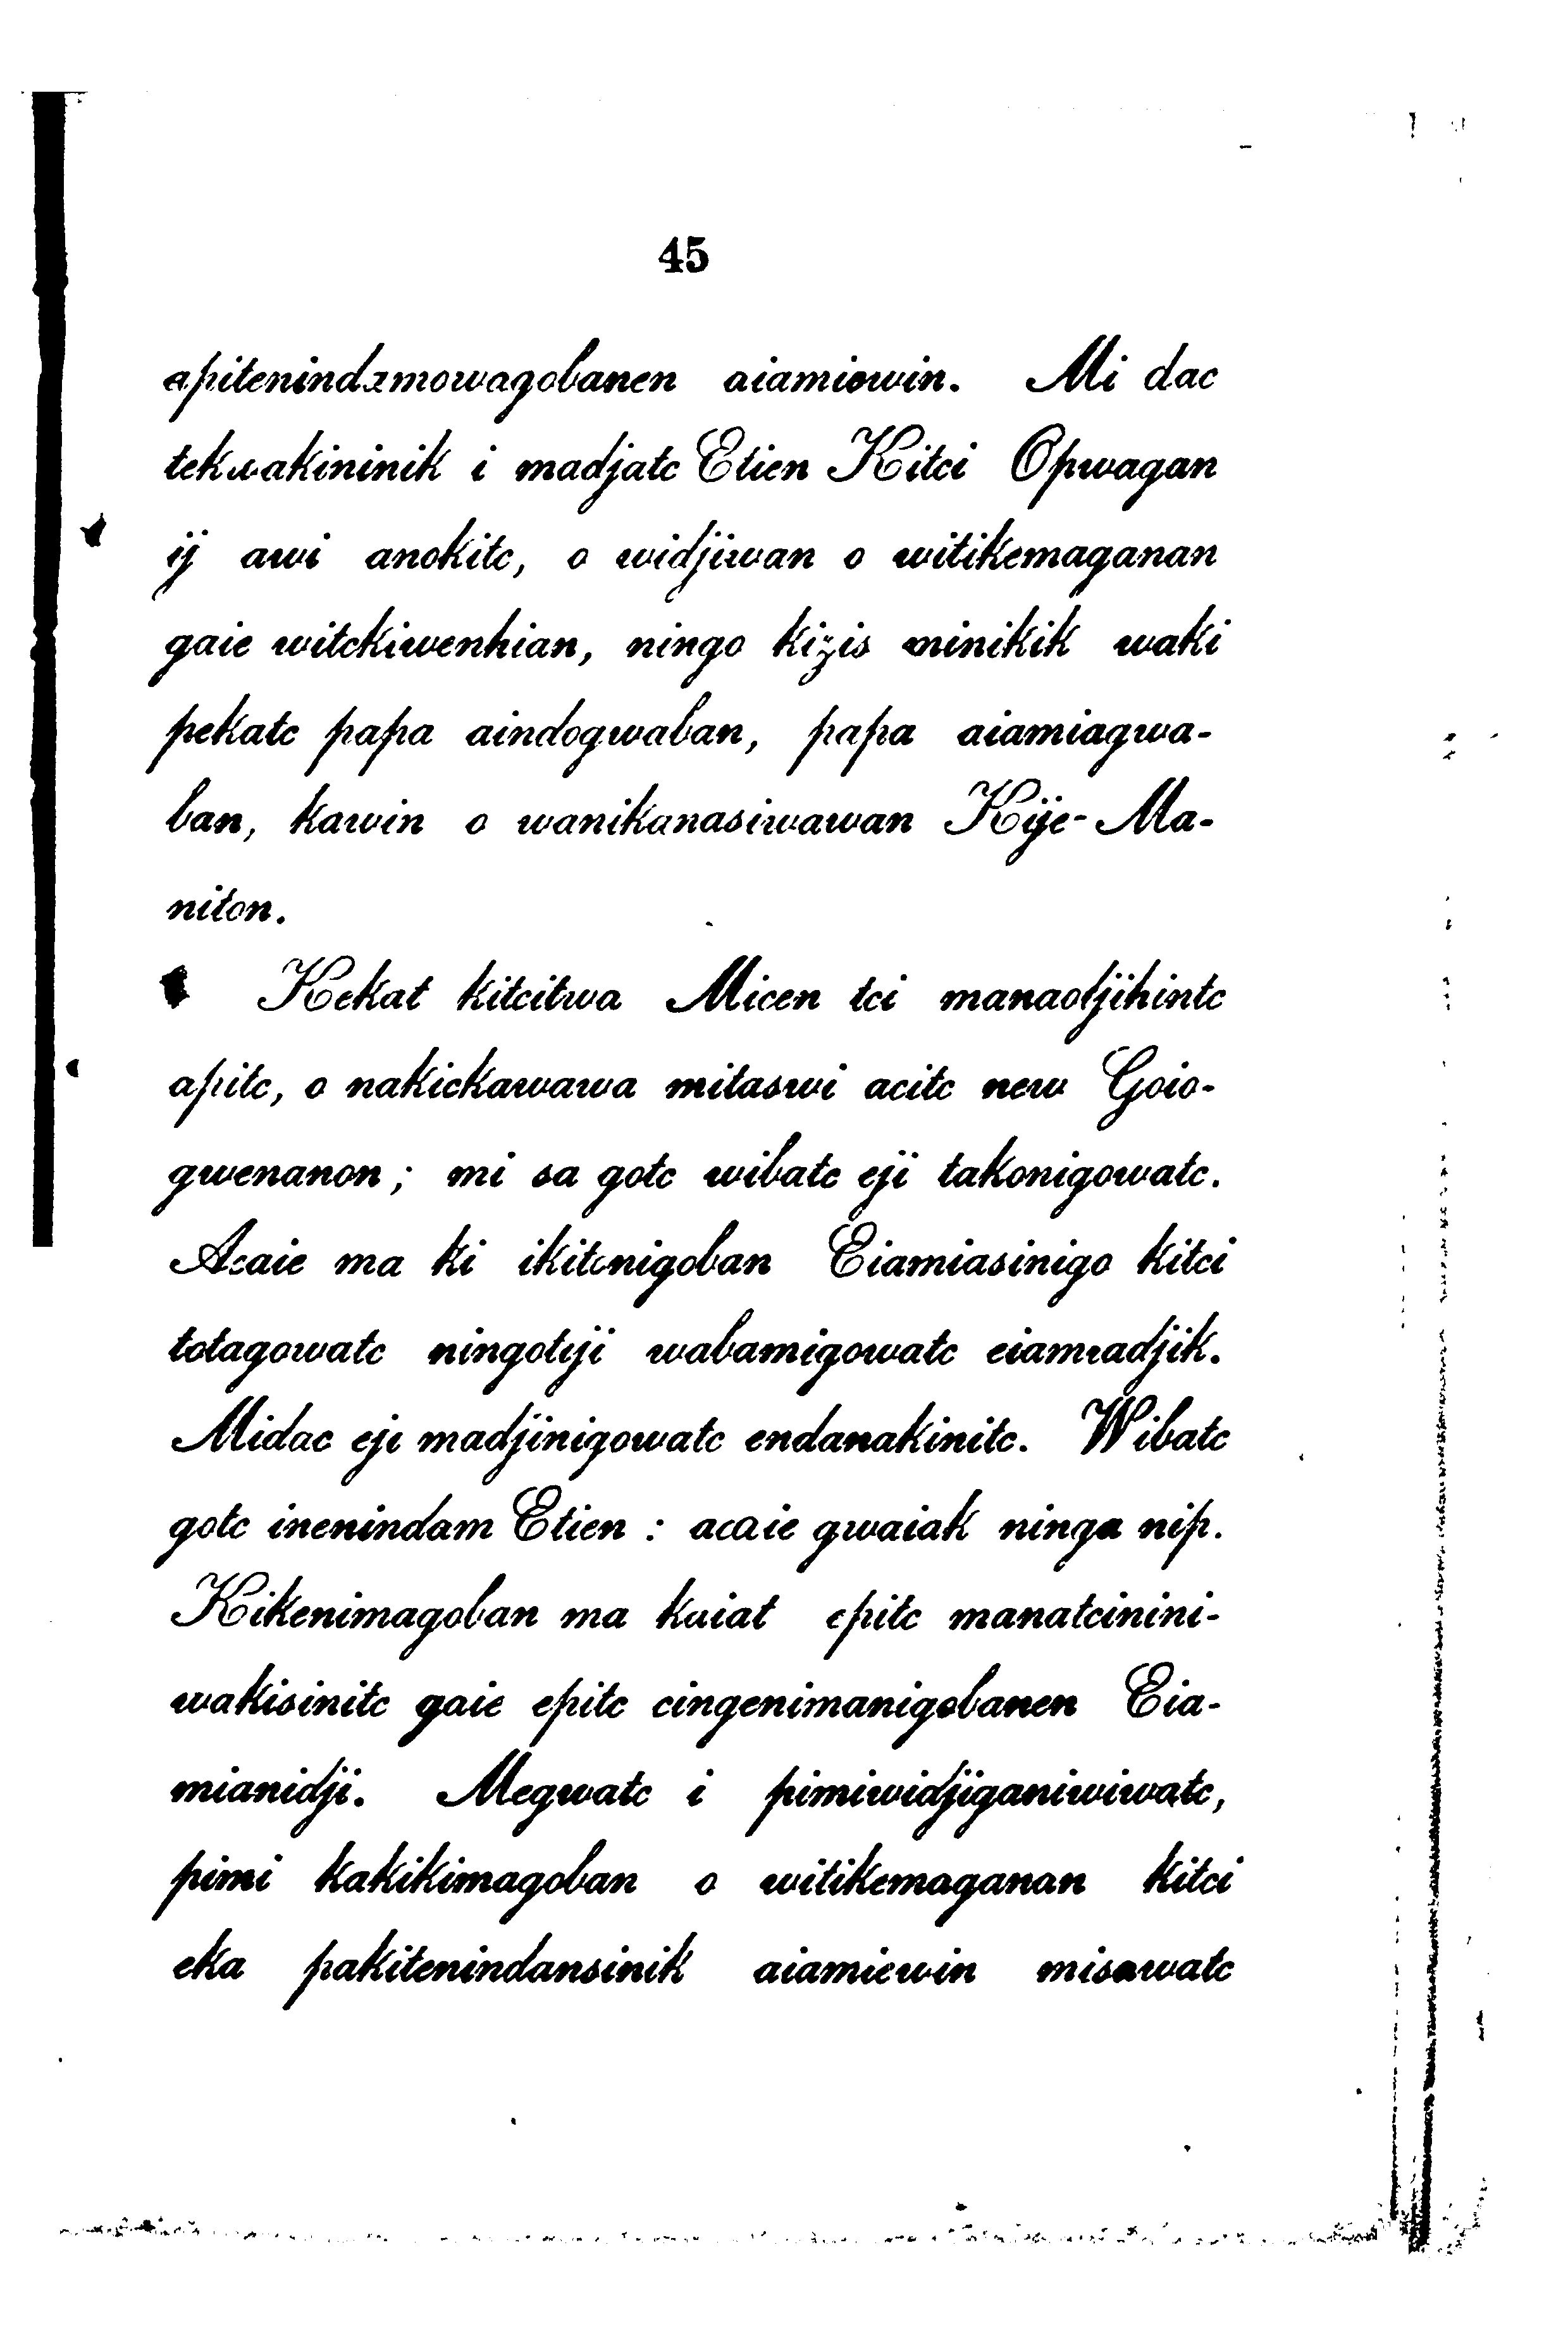 45
apitenindamowagobanen aiamiewin. Mi dac
tekwakininik i madjatc Etien Kitci Opwagan
ij awi anokitc, o widjiwan o witikemaganan
gaie witckiwenhian, ningo kizis minikik waki
pekatc papa aindogwaban, papa aiamiagwa-
ban, kawin o wanikanasiwawan Kije-Ma-
niton.
Kekat kitcitwa Micen tci manadjihintc
apitc, o nakickawawa mitaswi acitc new Goio-
gwenanon; mi sa gotc wibatc eji takonigowatc.
Acaie ma ki ikitonigoban Eiamiasinigo kitci
totagowatc ningotiji wabamigowatc eiamiadjik.
Midac eji madjinigowatc endanakinitc. Wibatc
gotc inenindam Etien : acaie gwaiak ninga nip.
Kikenimagoban ma kaiat epitc manatcinini-
wakisinitc gaie epitc cingenimanigobanen Eia-
mianidji. Megwatc i pimiwidjiganiwiwatc,
pimi kakikimagoban o witikemaganan kitci
eka pakitenindansinik aiamiewin misawatc